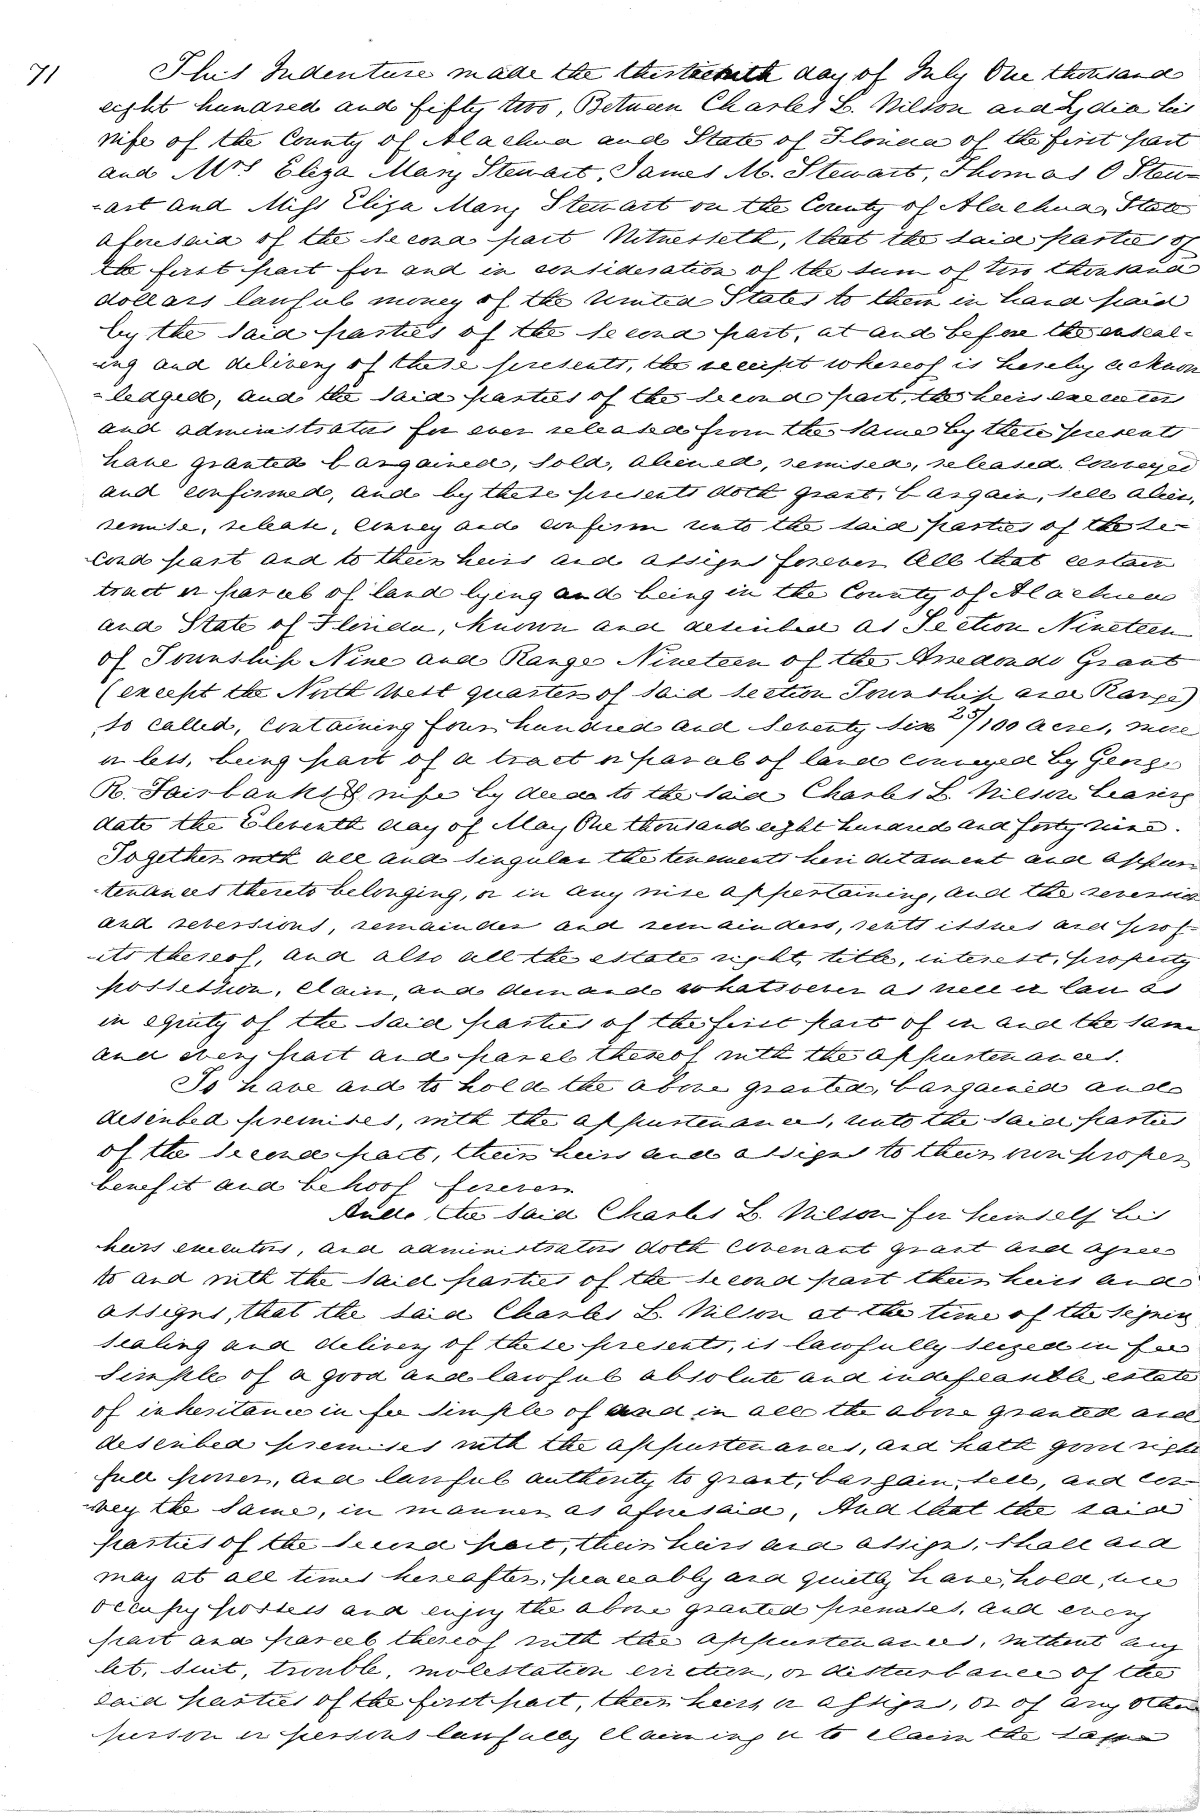 71
This Indenture made the thirteenth day of July One thousand
eight hundred and fifty two, Between Charles L. Wilson and Lydia his
wife of the County of Alachua and State of Florida of the first part
and Mrs Eliza Mary Stewart, James M. Stewart, Thomas O Stew=
=art and Miss Eliza Mary Stewart on the County of Alachua, State
aforesaid of the second part Witnesseth, that the said parties of
the first part for and in consideration of the sum of two thousand
dollars lawful money of the United States to them in hand paid
by the said parties of the second part, at and before the enseal=
=ing and delivery of these presents, the receipt whereof is hereby acknow
=ledged, and the said parties of the second part, the heirs executors
and administrators for ever released from the same by these presents
have granted bargained, sold, aliened, remised, released conveyed
and confirmed, and by these presents doth grant, bargain, sell alien,
remise, release, convey and confirm unto the said parties of the se-
cond part and to their heirs and assigns forever All that certain
tract or parcel of land lying and being in the County of Alachua
and State of Florida, known and described as Section Nineteen
of Township Nine and Range Nineteen of the Arredondo Grant
(except the North West quarter of said section Township and Range)
so called, containing four hundred and seventy six 25/100 acres, more
or less, being part of a tract or parcel of land conveyed by George
R. Fairbanks & wife by deed to the said Charles L. Wilson bearing
date the Eleventh day of May One thousand eight hundred and forty nine.
Together with all and singular the tenements heriditament and appur
-tenances thereto belonging, or in any wise appertaining, and the reversion
and reversions, remainder and remainders, rents issues and prof-
-its thereof, and also all the estate right, title, interest, property
possession, claim, and demand whatsoever as well in law as
in equity of the said parties of the first part of in and the same
and every part and parcel thereof with the appurtenances.
To have and to hold the above granted, bargained and
described premises, with the appurtenances, unto the said parties
of the second part, their heirs and assigns to their own proper
benefit and behoof forever.
And the said Charles L. Wilson for himself his
heirs executors, and administrators doth covenant grant and agree
to and with the said parties of the second part their heirs and
assigns, that the said Charles L. Wilson at the time of the signing
sealing and delivery of these presents, is lawfully seized in fee
simple of a good and lawful absolute and indefeasible estate
of inheritance in fee simple of and in all the above granted and
described premises with the appurtenances, and hath good right
full power, and lawful authority to grant, bargain, sell, and con-
-vey the same, in manner as aforesaid, And that the said
parties of the second part, their heirs and assigns, shall and
may at all times hereafter, peaceably and quietly have, hold, use
occupy possess and enjoy the above granted premises, and every
part and parcel thereof with the appurtenances, without any
let, suit, trouble, molestation eviction, or disturbance of the
said parties of the first part, their heirs, or assigns, or of any other
person or persons lawfully claiming or to claim the same